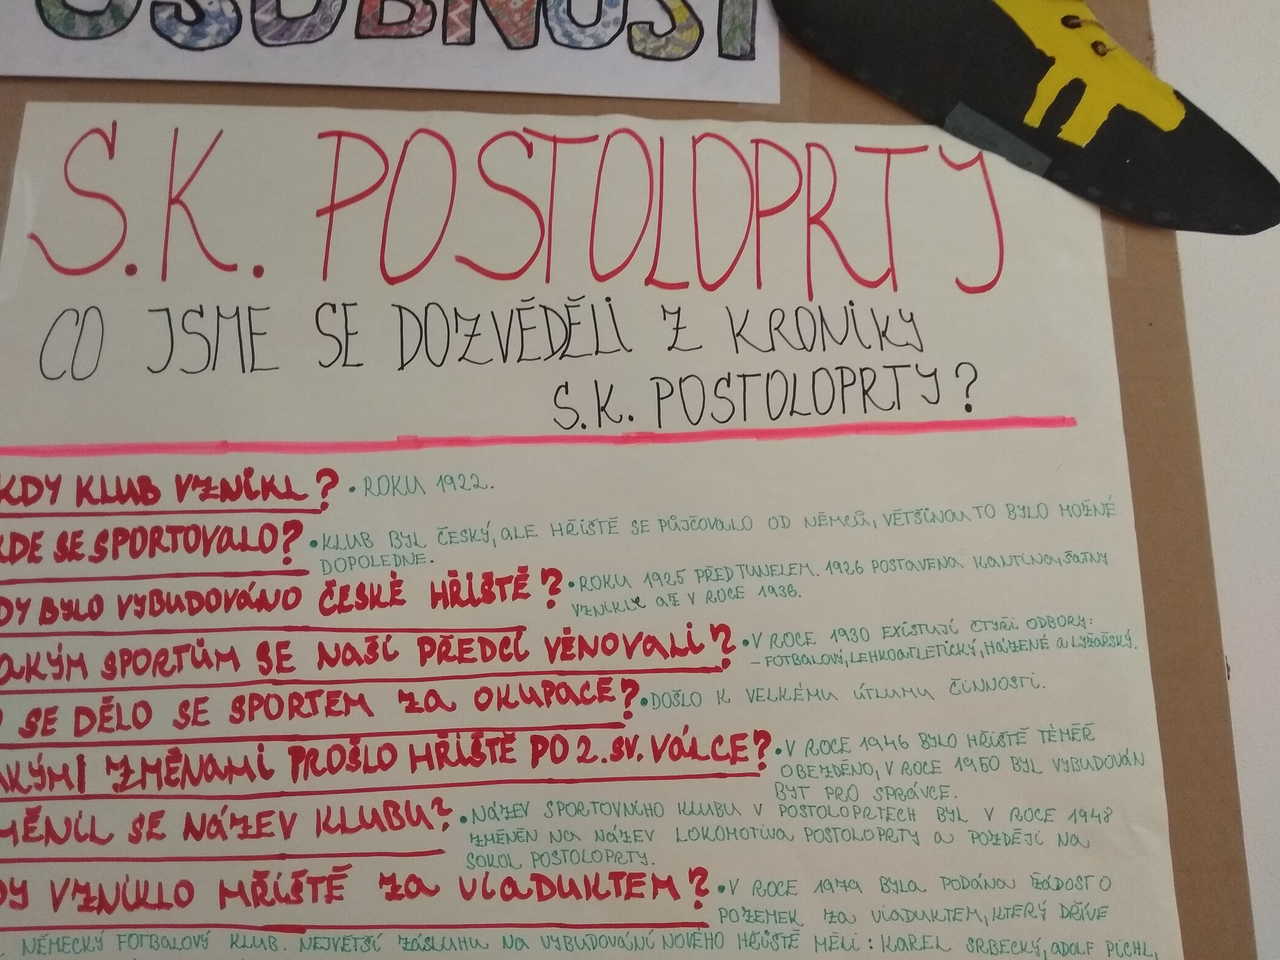 OSOBNOST
S.K. POSTOLOPRTY
CO JSME SE DOZVĚDĚLI Z KRONIKY
S.K. POSTOLOPRTY?
KDY KLUB VZNIKL? • ROKU 1922.
KDE SE SPORTOVALO? • KLUB BYL ČESKÝ, ALE HŘIŠTĚ SE PŮJČOVALO OD NĚMCŮ, VĚTŠINOU TO BYLO MOŽNÉ
DOPOLEDNE.
DY BYLO VYBUDOVÁNO ČESKÉ HŘIŠTĚ? • ROKU 1925 PŘED TUNELEM. 1926 POSTAVENA KANTINA, ŠATNY
VZNIKLY AŽ V ROCE 1936.
AKÝM SPORTŮM SE NAŠÍ PŘEDCI VĚNOVALI? • V ROCE 1930 EXISTUJÍ ČTYŘI ODBORY:
- FOTBALOVÝ, LEHKOATLETICKÝ, HÁZENÉ A LYŽAŘSKÝ.
SE DĚLO SE SPORTEM ZA OKUPACE? • DOŠLO K VELKÉMU ÚTLUMU ČINNOSTI.
AKÝMI ZMĚNAMI PROŠLO HŘIŠTĚ PO 2. SV. VÁLCE? • V ROCE 1946 BYLO HŘIŠTĚ TÉMĚŘ
OBEZDĚNO, V ROCE 1950 BYL VYBUDOVÁN
BYT PRO SPRÁVCE.
MĚNIL SE NÁZEV KLUBU? • NÁZEV SPORTOVNÍHO KLUBU V POSTOLOPRTECH BYL V ROCE 1948
ZMĚNĚN NA NÁZEV LOKOMOTIVA POSTOLOPRTY A POZDĚJI NA
SOKOL POSTOLOPRTY.
DY VZNIKLO HŘIŠTĚ ZA VIADUKTEM? • V ROCE 1979 BYLA PODÁNA ŽÁDOST O
POZEMEK ZA VIADUKTEM, KTERÝ DŘÍVE
NĚMECKÝ FOTBALOVÝ KLUB. NEJVĚTŠÍ ZÁSLUHU NA VYBUDOVÁNÍ NOVÉHO HŘIŠTĚ MĚLI: KAREL SRBECKÝ, ADOLF PICHL,